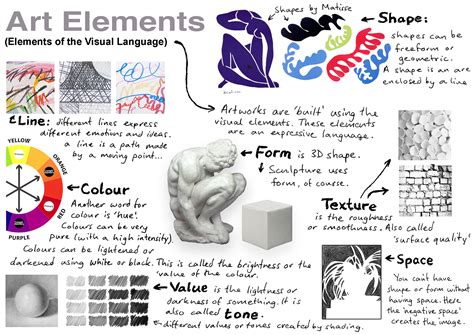 Art Elements
(Elements of the Visual Language)
Shapes by Matisse
Shape:
shapes can be
freeform or
geometric.
A shape is an are
enclosed by a line
Artworks are 'built' using the
visual elements. These elements
are an expressive language.
Line: different lines express
different emotions and ideas.
a line is a path made
by a moving point...
Form is 3D shape.
Sculpture uses
form, of course.
YELLOW
ORANGE
RED
PURPLE
Colour
Another word for
colour is 'hue'.
Colours can be very
pure (with a high intensity).
Colours can be lightened or
darkened using white or black. This is called the brightness or the
value of the colour.
Texture
is the roughness
or smoothness. Also called
'surface quality'
Value is the lightness or
darkness of something. It is
also called tone.
the different values or tones created by shading.
Space
You can't have
shape or form without
having space. Here
the 'negative space'
creates the image.